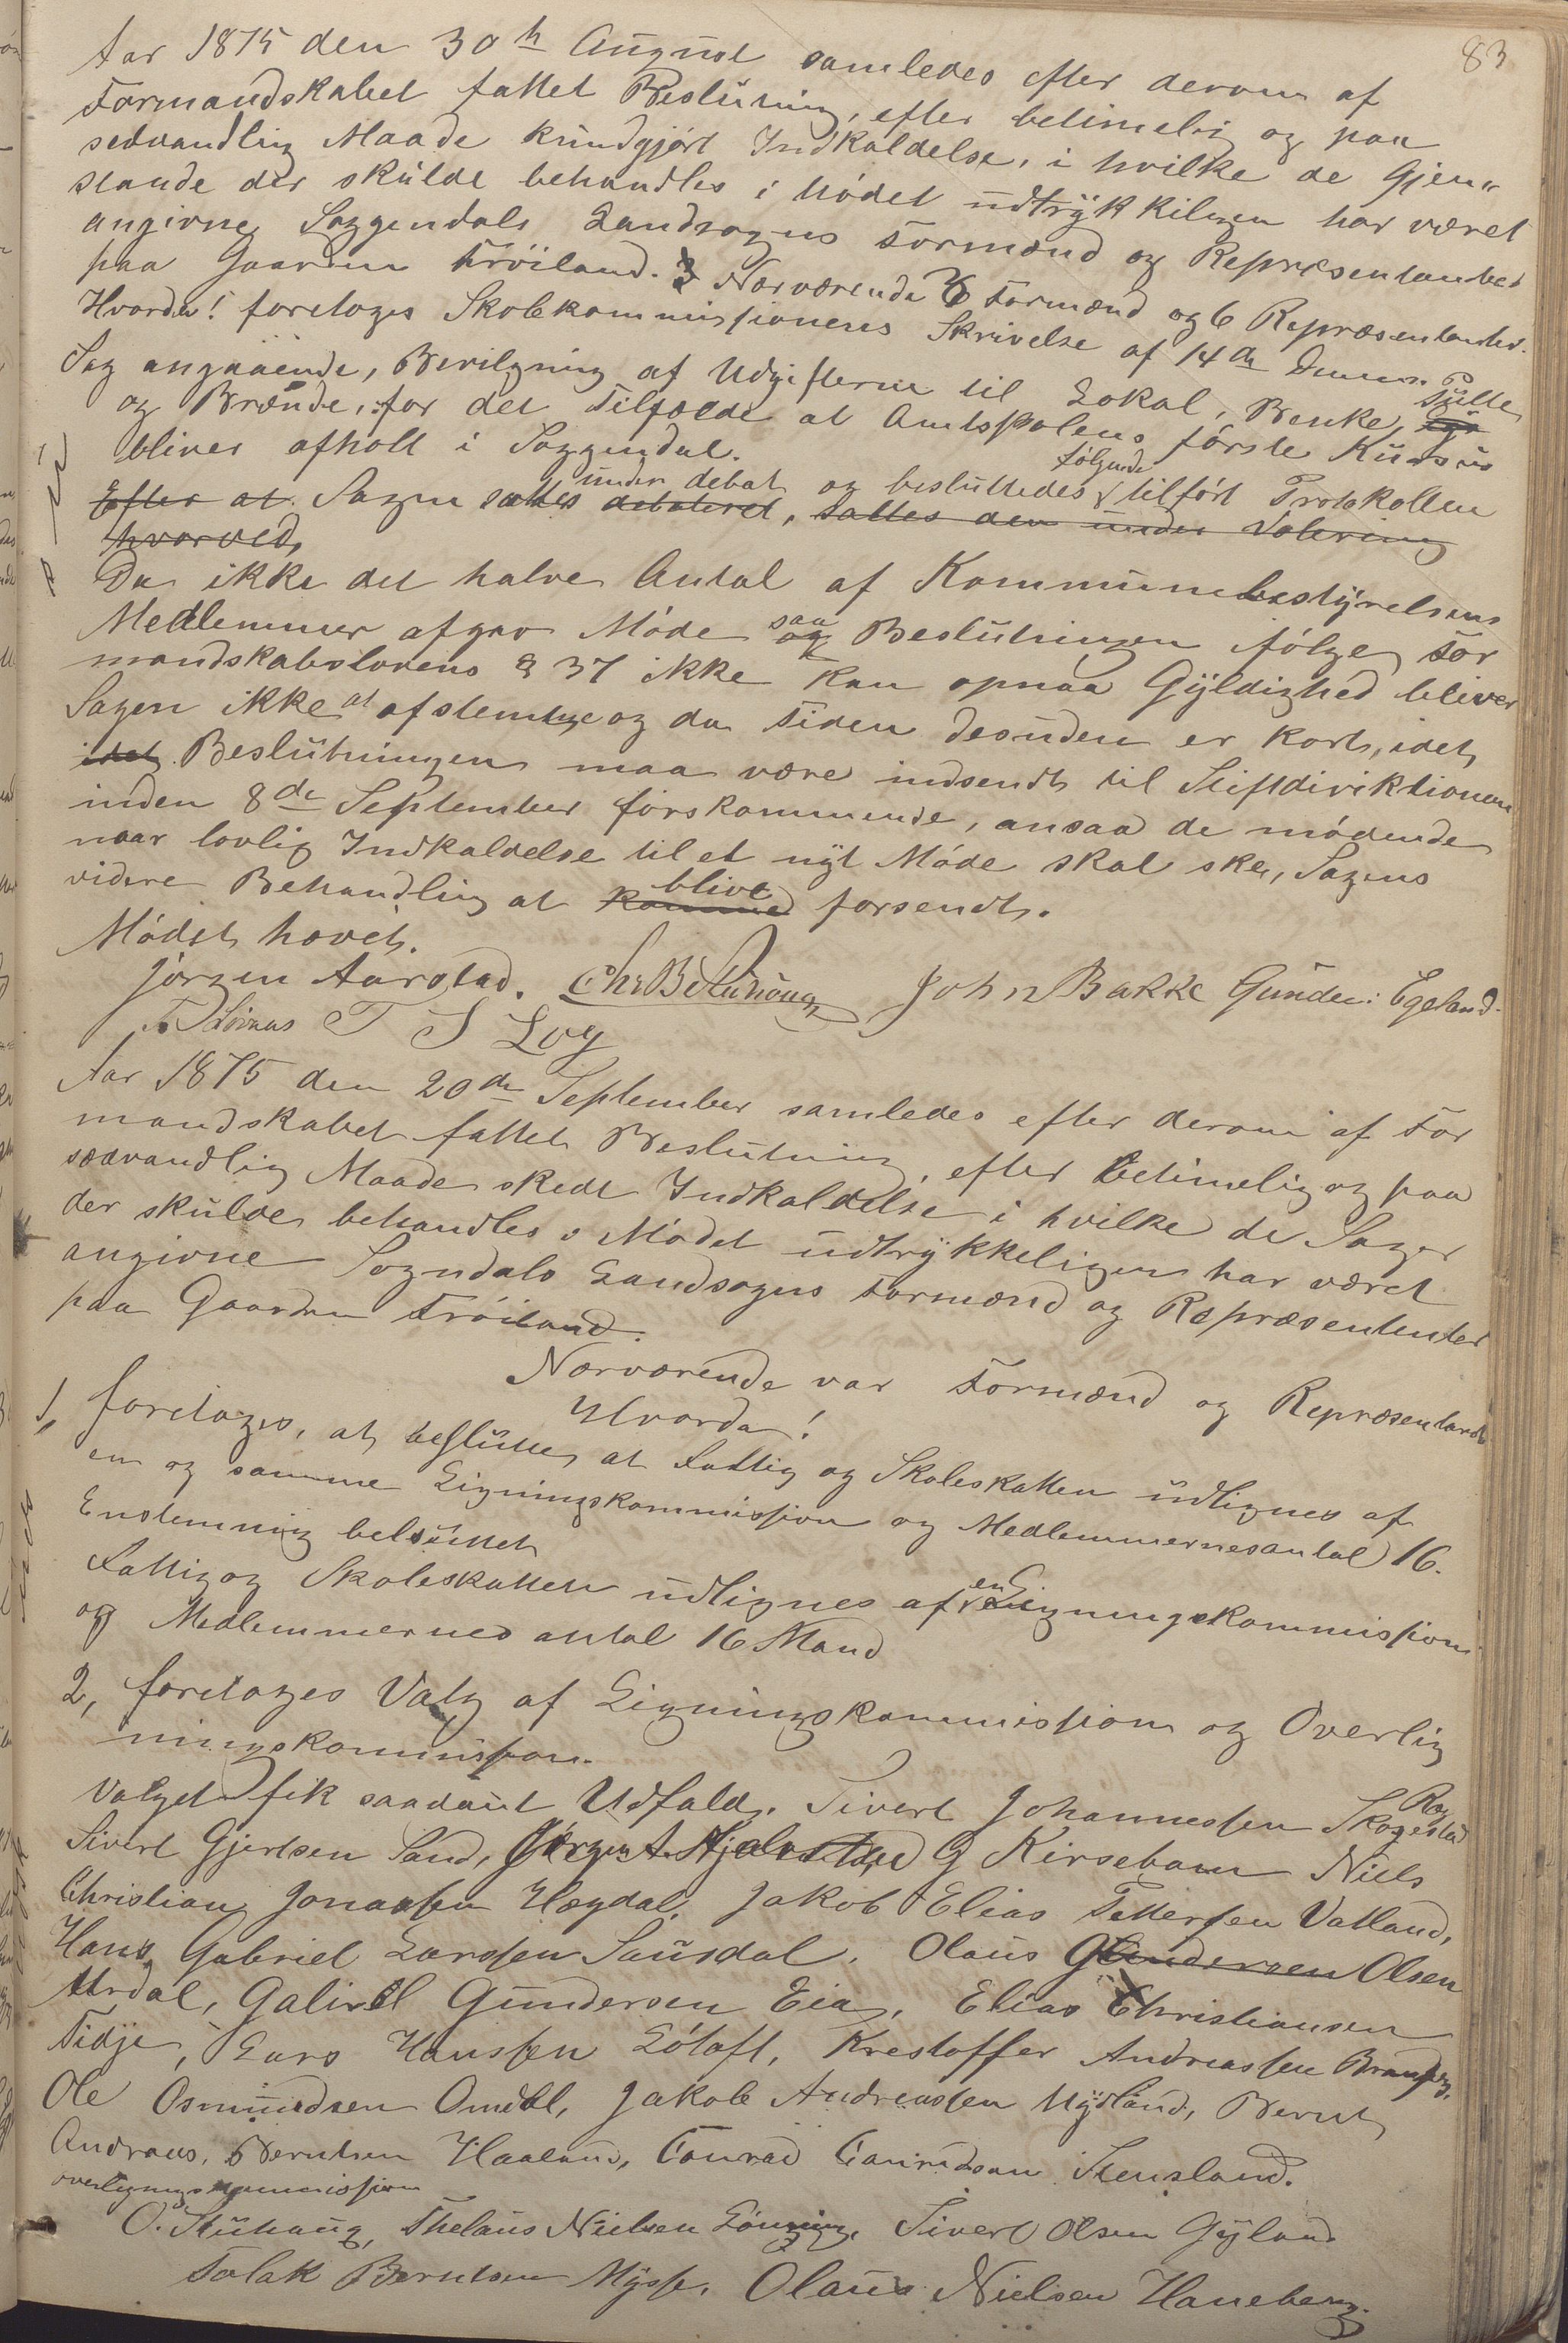 83
Aar 1875 den 30h August samledes efter derom af
Formandskabet fattet Beslutning, efter betimelig og paa
sedvandlig Maade kundgjört Indkaldelse, i hvilke de Gjen-
stande der skulde behandles i Mödet udtrykkiligen har været
angivne, Soggendals Landsogns Formænd og Repræsentanter
paa Gaarden Fröiland. Nærværende 6 Formænd og 6 Repræsentanter.
Hvorda! foretoges Skolekommissionens Skrivelse af 14de
Sag angaaende, Bevilgning af Udgifterne til Lokal, Benke, Pulte
og Brænde, for det Tilfælde at Amtsskolens förste Kursus
bliver afholt i Soggendal.
Efter at Sagen sattes under debat debateret, og besluttedes fölgende tilfört Protokollen
sattes den under Votering
hvorved,
Da ikke det halve Antal af Kommunebestyrelsens
Medlemmer afgav Möde saa Beslutningen ifölge For
mandskabslovens § 37 ikke kan opnaa Gyldighed bliver
Sagen ikke at afstemme og da Tiden desuden er kort, idet
idet Beslutningen maa være indsendt til Stiftdirektionen
inden 8de September förskommende, ansaa de mödende
naar lovlig Indkaldelse til et nyt Möde skal ske, Sagens
videre Behandling at komme blive forsendt.
Mödet hævet.
Jörgen Aarstad. Chr B Stuhoug John Bakke Gunder: Egeland.
T S Log
Aar 1875 den 20de September samledes efter derom af For
mandskabet fattet Beslutning, efter betimelig og paa
sædvandlig Maade skedt Indkaldelse i hvilke de Sager
der skulde behandles i Mödet udtrykkeligen har været
angivne Sogndals Landsogns Formænd og Repræsentanter
paa Gaarden Fröiland.
Nærværende var Formænd og Repræsentant
Hvorda!
1, foretoges, at beslutte, at Fattig og Skoleskatten udlignes af
en og samme Ligningskommission og Medlemmernesantal 16.
Enstemmig belsuttet
Fattig og Skoleskatten udlignes af en Ligningskommission
og Medlemmernes antal 16 Mand
2, foretoges Valg af Ligningskommission og Overlig
ningskommission.
Valget fik saadant Udfald. Sivert Johannessen Skogestad
Sivert Gjertsen Sand, G Kirsebom Niels
Christian Jonassen Hegdal, Jakob Elias Pettersen Vatland,
Hans Gabriel Larssen Sausdal, Olaus Gundersen Olsen
Urdal, Gabriel Gundersen Eia, Elias Christiansen
Tidje, Lars Hanssen Lötoft, Krestoffer Andreassen
Ole Osmundsen Omdal, Jakob Andreassen Mydland, Bernt
Andreas, Berntsen Haaland, Conrad Stensland.
overligningskommission
O. Stuhaug, Thelaus Nielsen Lönning, Sivert Olsen Gyland
Tolak Berntsen Mysse, Olaus Nielsen Haneberg.